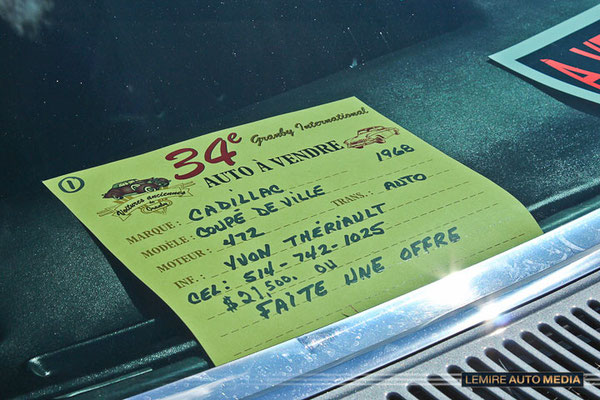 ①
34e Granby International
AUTO À VENDRE
Voitures anciennes
de
Granby
MARQUE : CADILLAC 1968
MODÈLE : COUPÉ DE VILLE
MOTEUR : 472 TRANS. : AUTO
INF. : YVON THÉRIAULT
CEL: 514-742-1025
$21,500. OU
FAITE UNE OFFRE
A VE
LEMIRE AUTO MEDIA